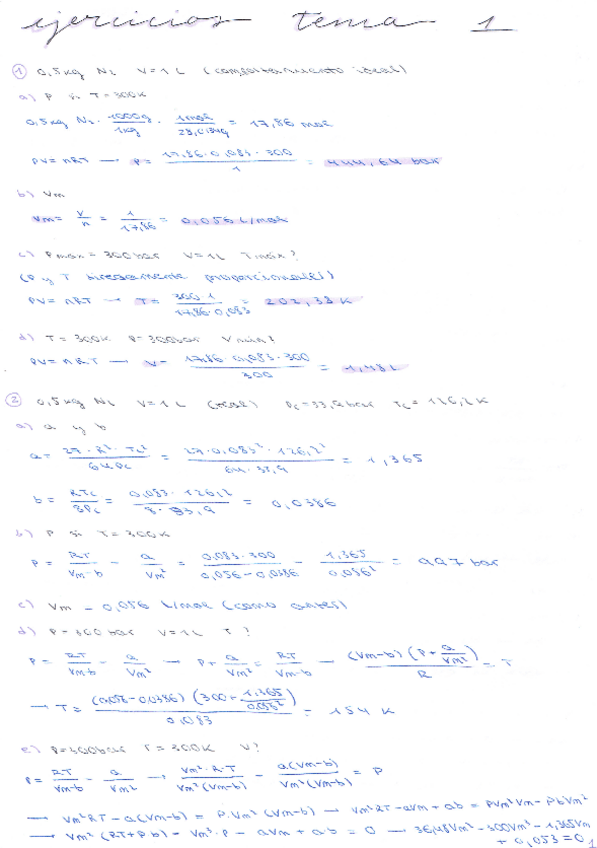 ejercicios tema 1
① 0,5kg N₂ V=1L (comportamiento ideal)
a) P si T=300K
0,5kg N₂ · 1000g/1kg · 1mol/28,0134g = 17,86 mol
PV=nRT → P= 17,86·0,083·300/1 = 444,64 bar
b) Vm
Vm= V/n = 1/17,86 = 0,056 L/mol
c) Pmax=300bar V=1L Tmáx?
(P y T directamente proporcionales)
PV=nRT → T= 300·1/17,86·0,083 = 202,33 K
d) T=300K P=300bar Vmin?
PV=nRT → V= 17,86·0,083·300/300 = 1,48L
② 0,5kg N₂ V=1L (real) Pc=33,9bar Tc=126,2K
a) a y b
a= 27·R²·Tc²/64Pc = 27·0,083²·126,2²/64·33,9 = 1,365
b= RTc/8Pc = 0,083·126,2/8·33,9 = 0,0386
b) P si T=300K
P= RT/Vm-b - a/Vm² = 0,083·300/0,056-0,0386 - 1,365/0,056² = 997 bar
c) Vm = 0,056 L/mol (como antes)
d) P=300bar V=1L T?
P= RT/Vm-b - a/Vm² → P+ a/Vm² = RT/Vm-b → (Vm-b)(P+ a/Vm²)/R = T
→ T= (0,056-0,0386)(300+ 1,365/0,056²)/0,083 = 154 K
e) P=300bar T=300K V?
P= RT/Vm-b - a/Vm² → Vm²·R·T/Vm²(Vm-b) - a(Vm-b)/Vm²(Vm-b) = P
→ Vm²RT-a(Vm-b) = P·Vm²(Vm-b) → Vm²RT-aVm+ab = PVm²Vm-PbVm²
→ Vm²(RT+Pb) - Vm³·P - aVm + ab = 0 → 36,48Vm² - 300Vm³ - 1,365Vm
+ 0,053=0
1